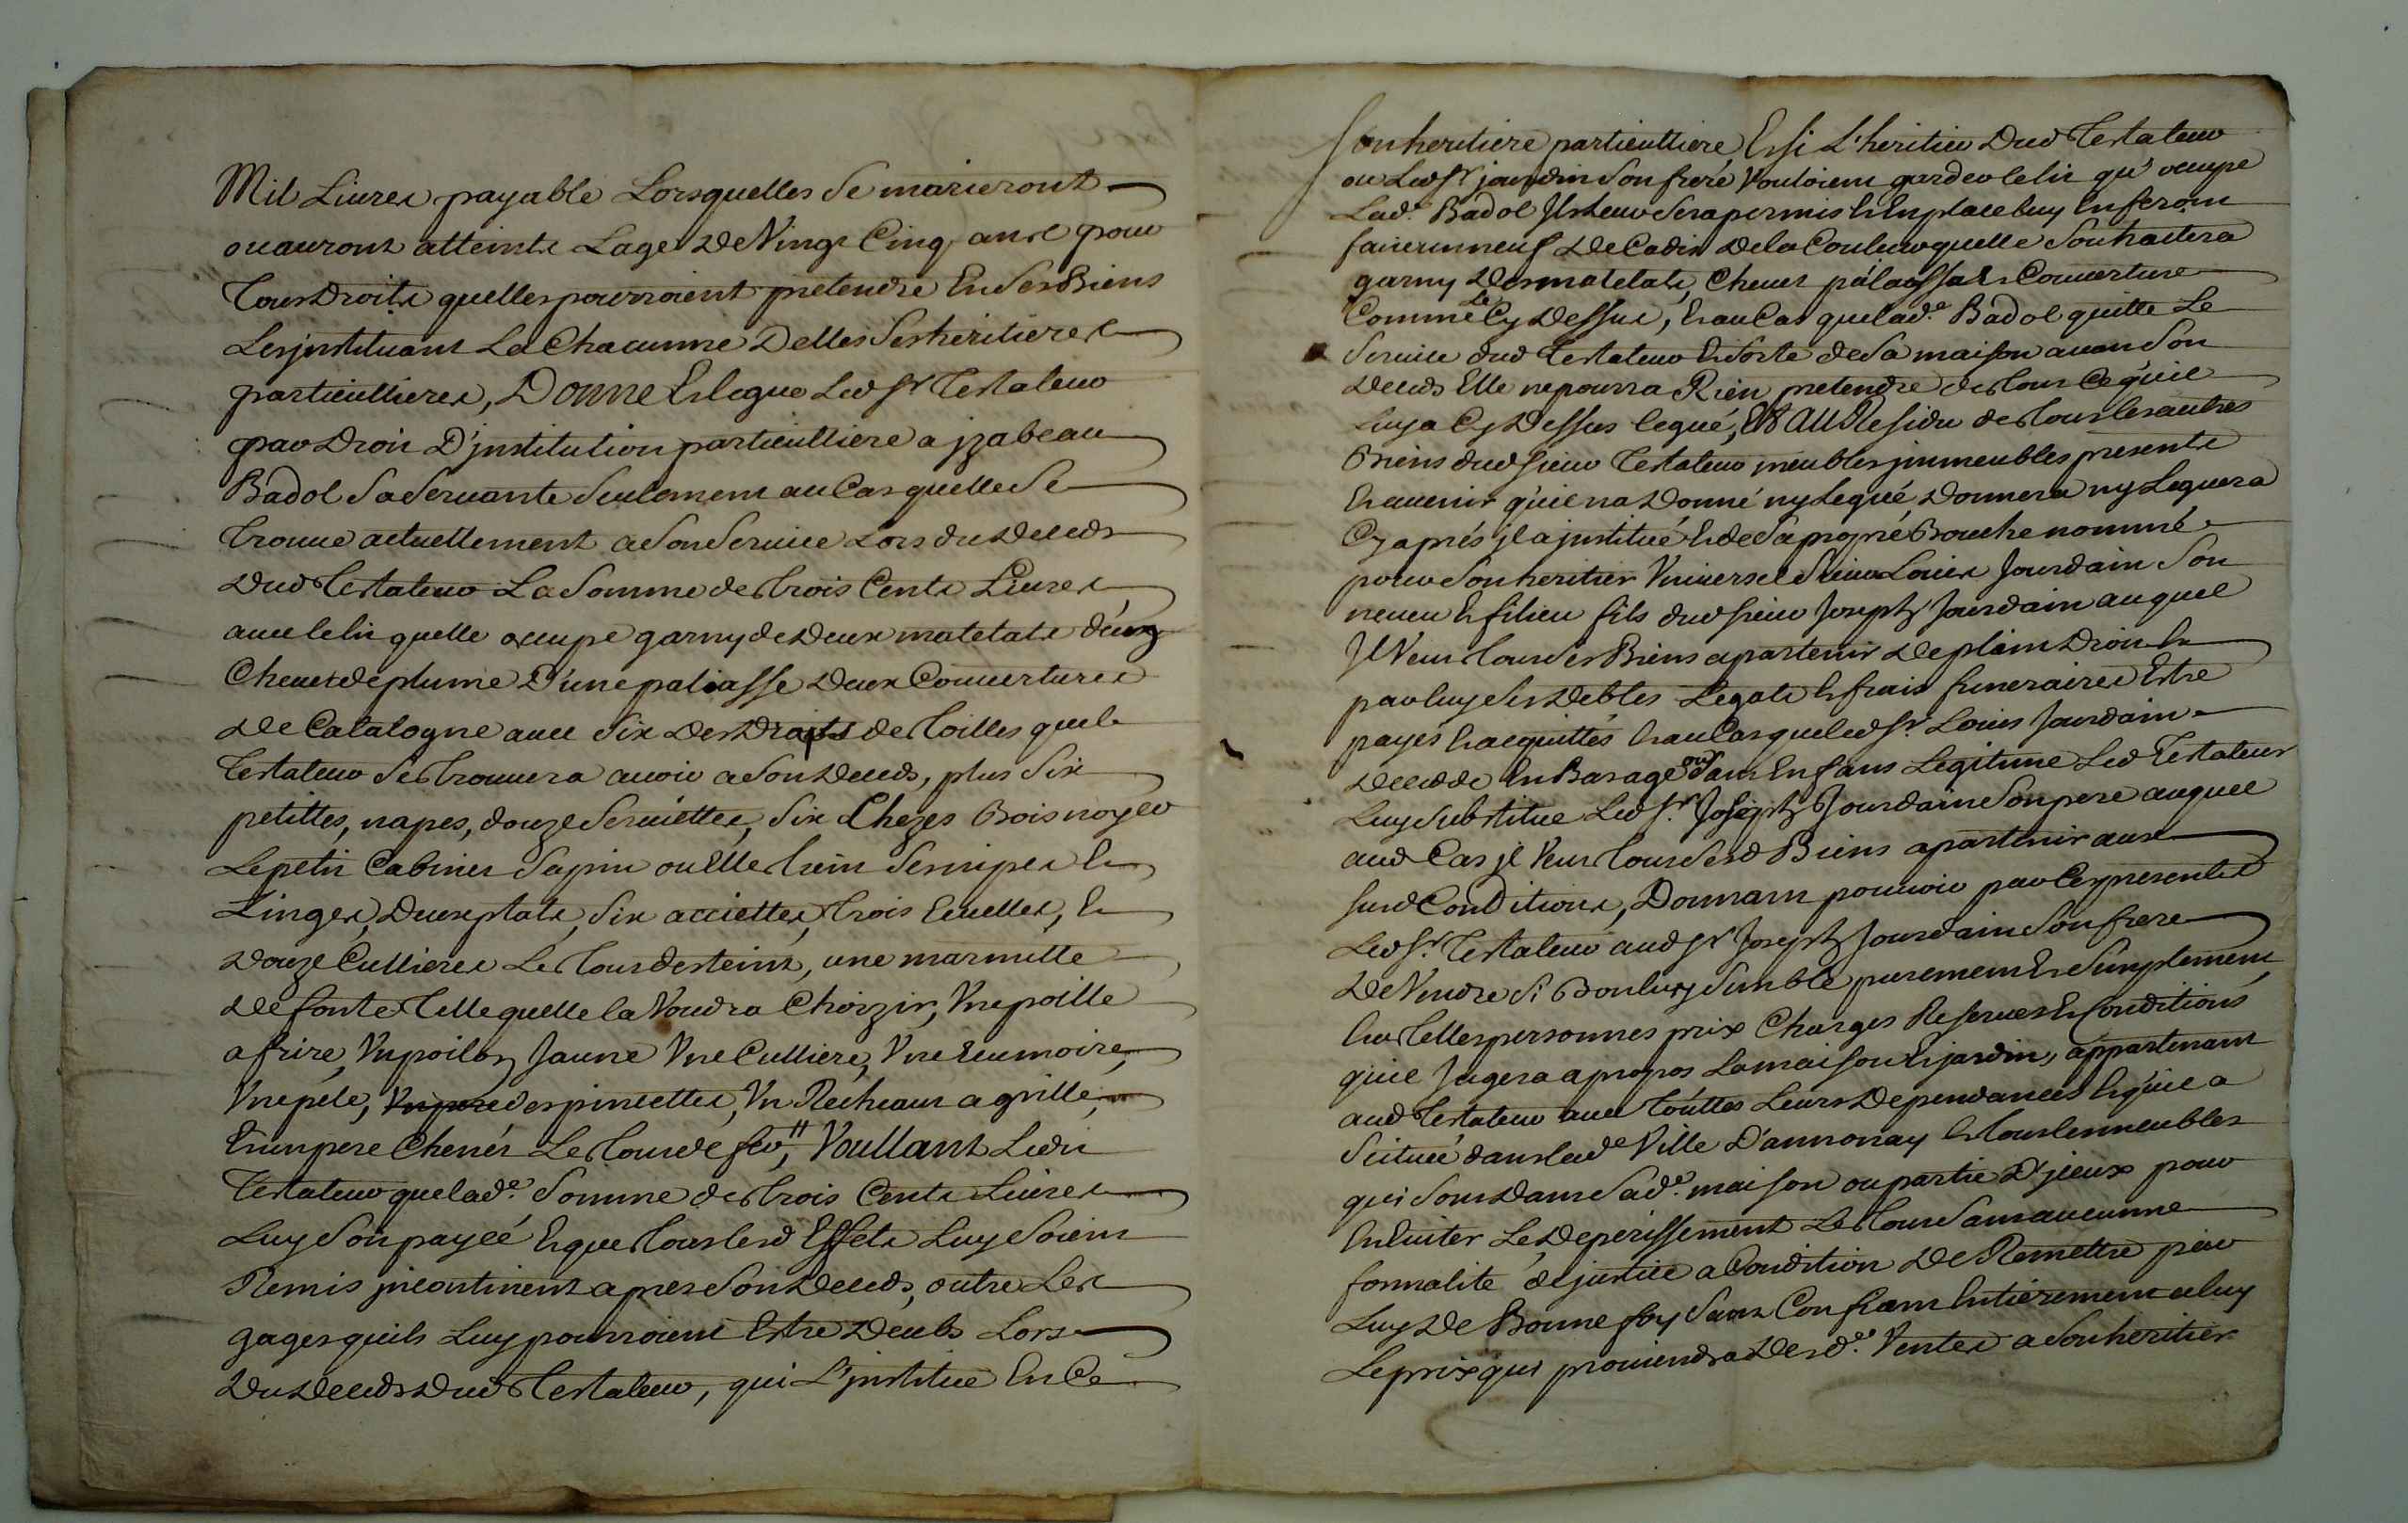 Mil Livres payable Lorsquelles se marieront
ou auront atteints Lage de Vingt Cinq ans pour
Tous Droits quelles pourroient pretendre En ses Biens
Les jnstituant La Chacunne Delles ses heritieres
particullieres, Donne Et legue Led sr Testateur
par Droit D'jnstitution particulliere a jzabeau
Badol sa servante seulement au Cas quelle se
Trouve actuellement a son service Lors du deceds
dud Testateur La somme de Trois Cents Livres
avec le lit quelle occupe garny de deux matelats d'un
Chevet de plume D'une paliasse deux Couvertures
de Catalogne avec six des draps de Toilles que le
Testateur se Trouvera avoir a son deceds, plus six
petittes, napes, douze serviettes, six Chezes Bois noyer
Le petit Cabinet sapin ou Elle Tient ses nipes Et
Linges, deux plats, six acciettes, trois Ecuelles, Et
douze Cullieres Le Tout destein, une marmitte
de fonte Telle quelle la Voudra Choizir, Vne poille
a frire, Vn poilon Jaune Vne Culliere, Vne Ecumoire,
Vne pele, Vn pere des pincettes, Vn Rechaut a grille,
Et un pere Chenét Le Tout de fer, Voullant Ledit
Testateur que lade. somme de Trois Cents Livres
Luy soit payeé Et que Tous lesd Effets Luy soient
Remis jncontinent apres son deceds, outre Les
gages quils Luy pourroient Estre deubs Lors
du deceds dud Testateur, qui L'jnstitue En Ce
son heritiere particulliere Et si L'heritier Dud Testateur
ou Led sr jourdin son frere Vouloient garder le lit qu'occupe
Lade. Badol Jls Leur sera permis Et En place luy En feront
faire un neuf de Cadis de la Couleur quelle souhaitera
garny des matelats, Chevet pálassse Et Couverture
Comme Le Cy dessus, Et au Cas que lade. Badol quitte Le
service dud Testateur Et sorte de sa maison avant son
deceds Elle ne pourra Rien pretendre de Tout Ce qu'il
Luy a Cy dessus legué, Et AU Residu de Tous les autres
Biens dud sieur Testateur meubles jmmeubles presents
Et avenir qu'il na donné ny Legué, donnera ny Leguera
Cy aprés jl a jnstitué Et de sa propre Bouche nommé
pour son heritier Vniversel sieur Louis Jourdain son
neveu Et filieu fils dud sieur Joseph Jourdain auquel
Jl Veut Tous ses Biens apartenir de plain Droit Et
par luy ses debtes Legats Et frais funeraires Estre
payés Et acquittés Et au Cas que led sr. Louis Jourdain
decedde En Bas age ou sans Enfans Legitime Led Testateur
Luy substitue Led sr. Joseph Jourdain son pere auquel
aud Cas jl Veut Tous sesd Biens apartenir aux
susd Conditions, Donnant pouvoir par Ces presentes
Led sr. Testateur aud sr Joseph Jourdain son frere
de Vendre si Bon luy semble purement Et simplement
Et a Telles personnes prix Charges Reserves Et Conditions
qu'il Jugera apropos La maison Et jardin, appartenant
aud Testateur avec Touttes Leurs dependances Et qu'il a
scitué dans lade Ville D'annonay Et Tous les meubles
qui sont dans sade. maison ou partie D'jceux pour
En Eviter Le deperissement Le Tout sans aucunne
formalité de justice a Condition de Remettre par
Luy de Bonne foy sans Con Entierement a luy
Le prix qui proviendra desdes. Ventes a son heritier